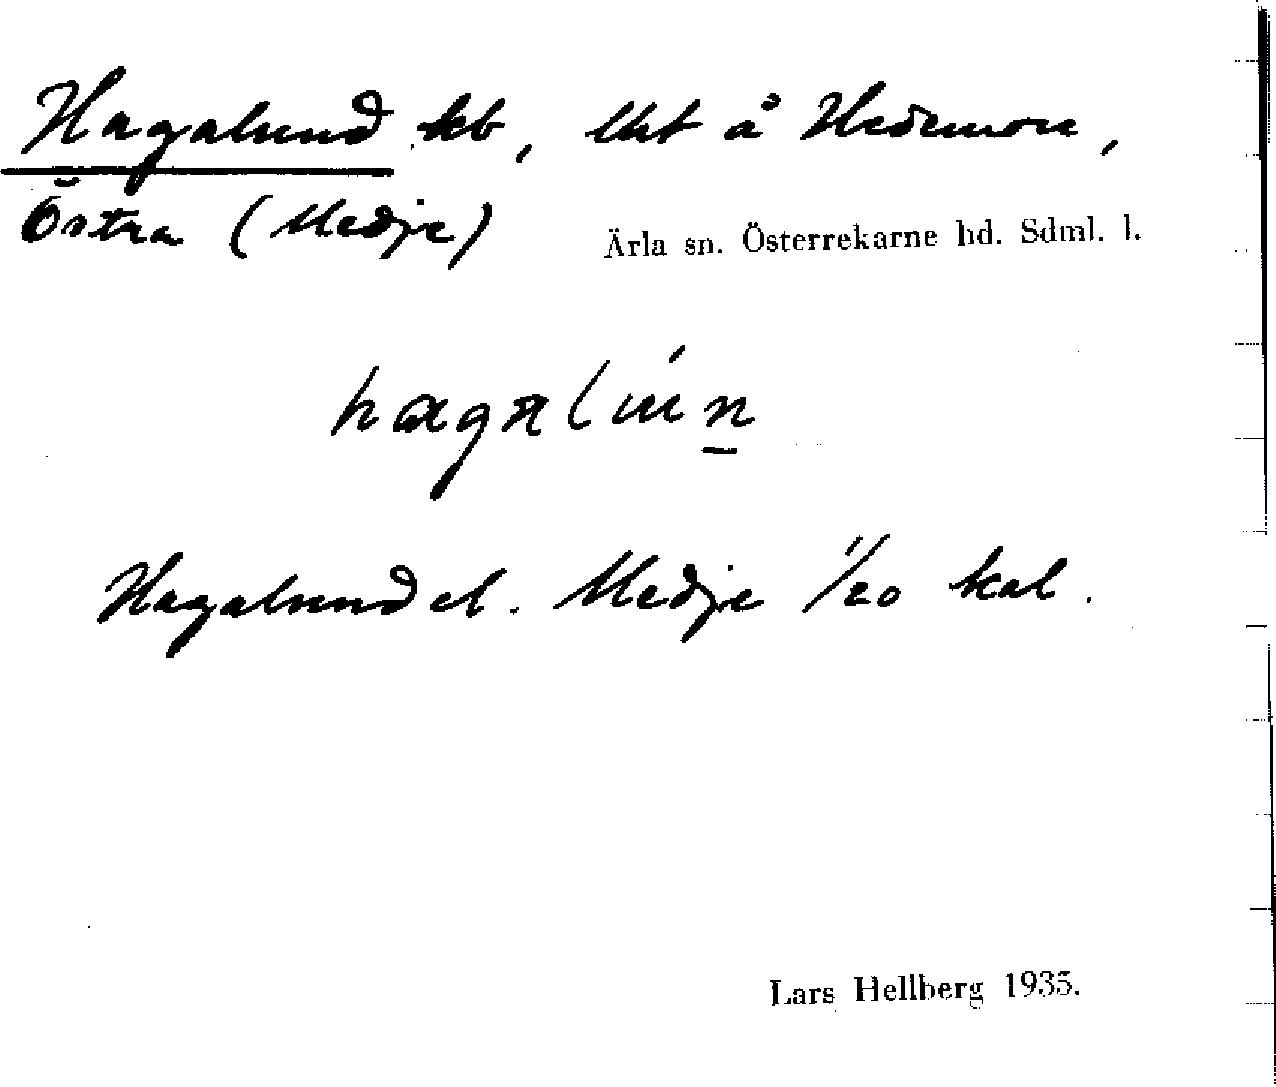 Hagalund, tb, lht å Hedemora,
Östra (Medje)
Ärla sn. Österrekarne hd. Sdml. l.
hagalún
Hagalund el. Medje 1/20 kal.
Lars Hellberg 1935.